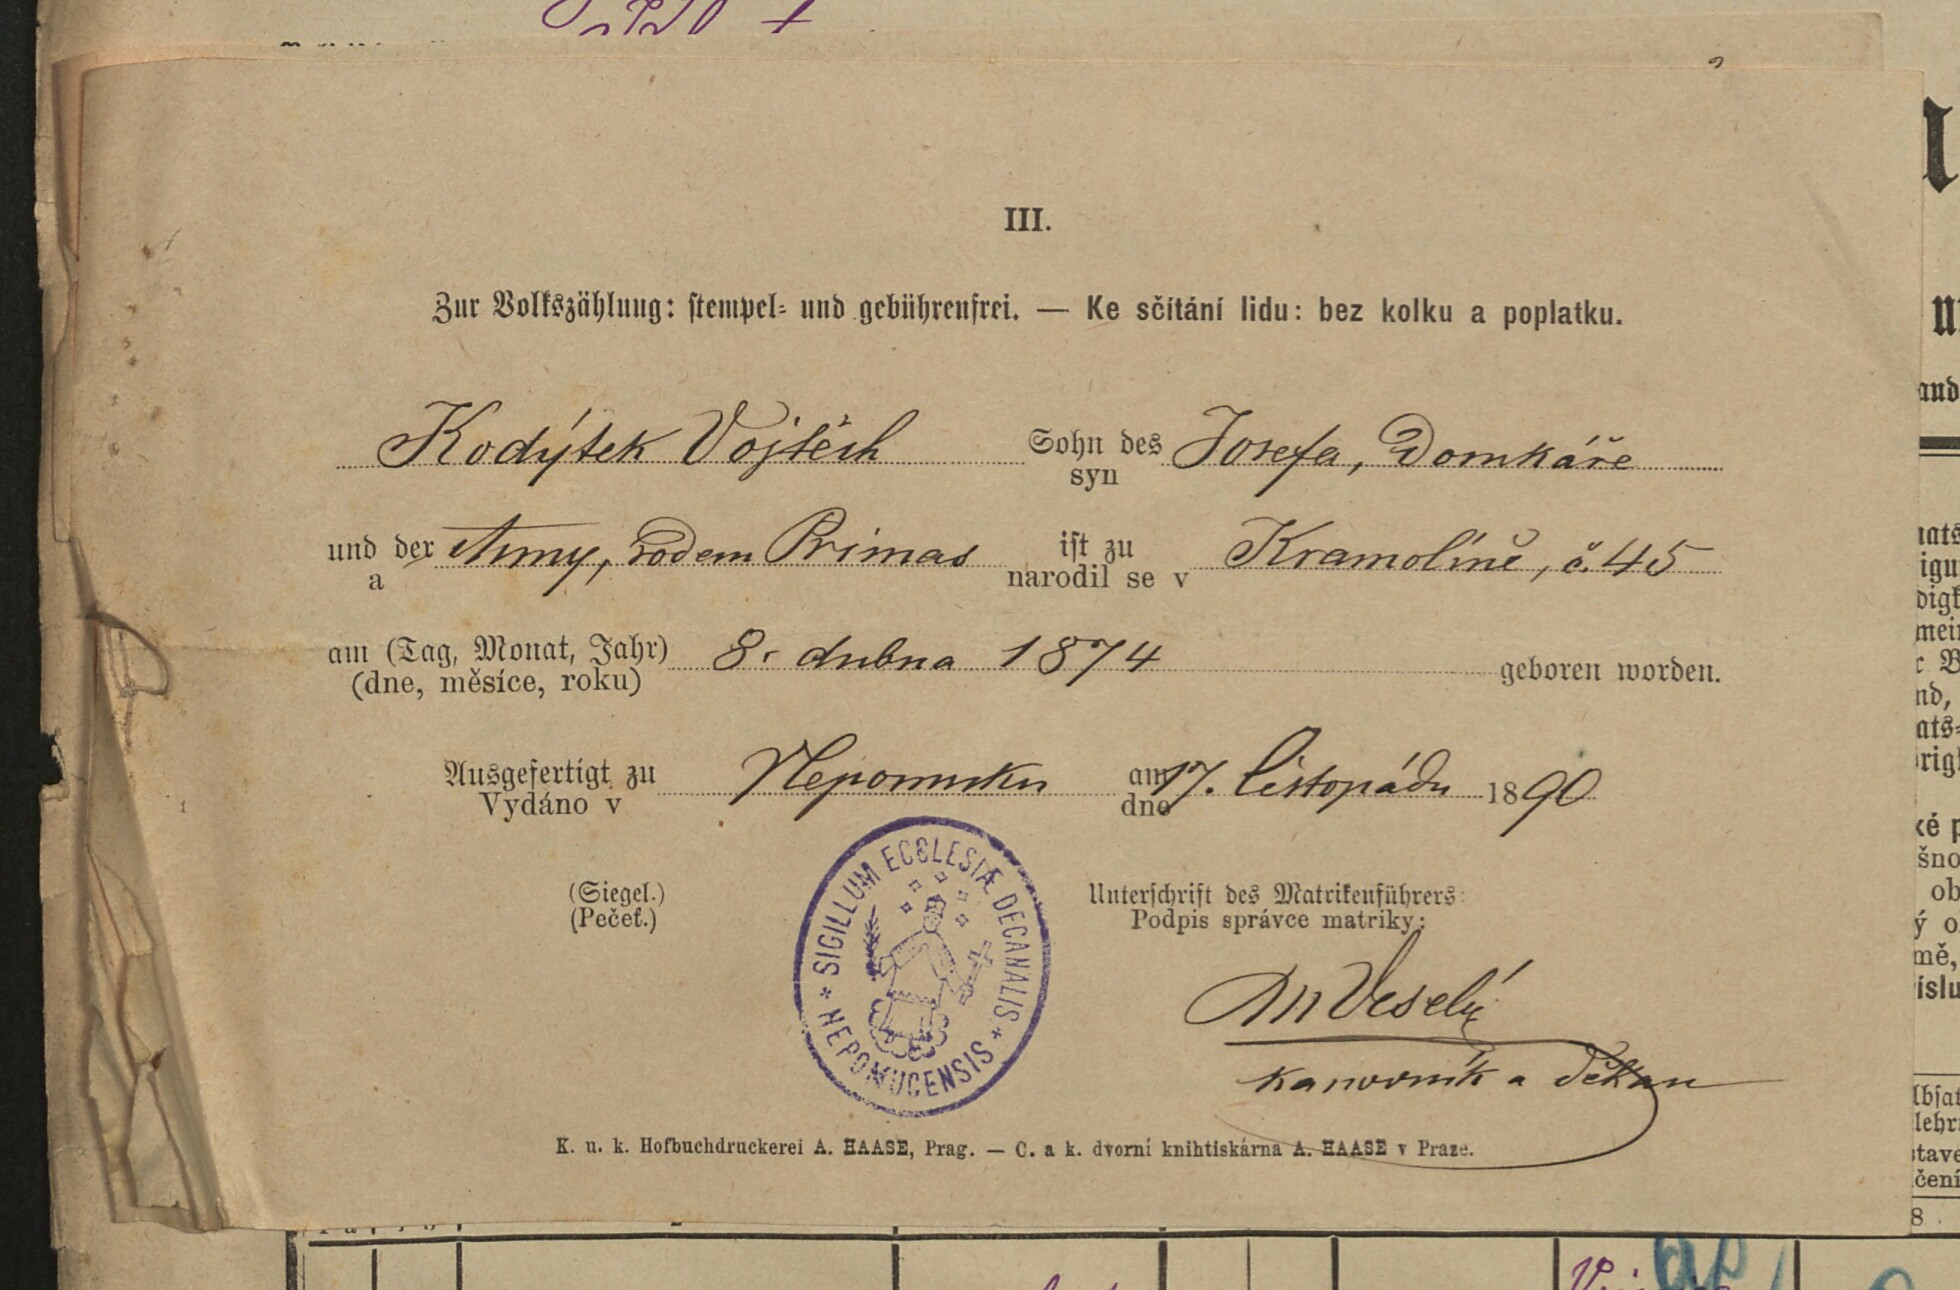 III.
Zur Volkszählung: stempel- und gebührenfrei. — Ke sčítání lidu: bez kolku a poplatku.
Kodýtek Vojtěch Sohn des Josefa, Domkáře
syn
und der Anny, rodem Primas ist zu Kramolíně, č. 45
a narodil se v
am (Tag, Monat, Jahr) 8. dubna 1874 geboren worden.
(dne, měsíce, roku)
Ausgefertigt zu Nepomuku am 17. listopádu 1890
Vydáno v dne
(Siegel.) Unterschrift des Matrikenführers:
(Pečeť.) Podpis správce matriky:
* SIGILLUM ECCLESIÆ DECANALIS * NEPOMUCENSIS
Veselý
kanovník a děkan
K. u. k. Hofbuchdruckerei A. HAASE, Prag. — C. a k. dvorní knihtiskárna A. HAASE v Praze.